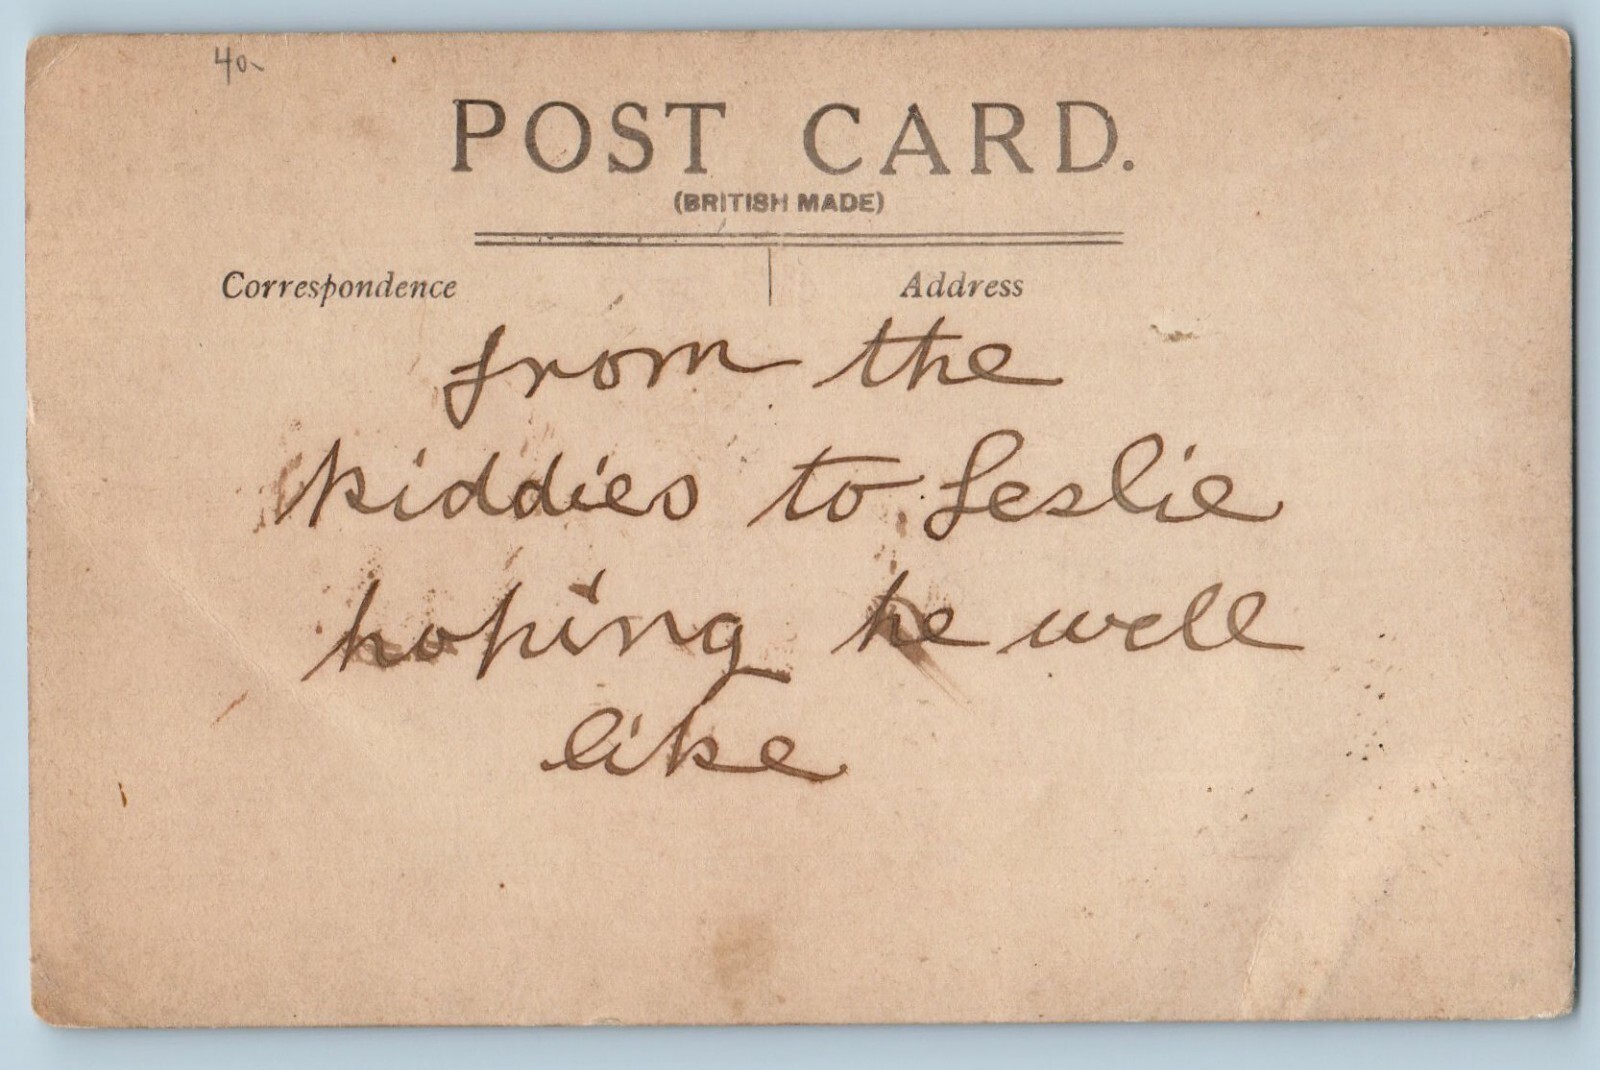 40
POST CARD.
(BRITISH MADE)
Correspondence
Address
from the
kiddies to Leslie
hoping he well
like